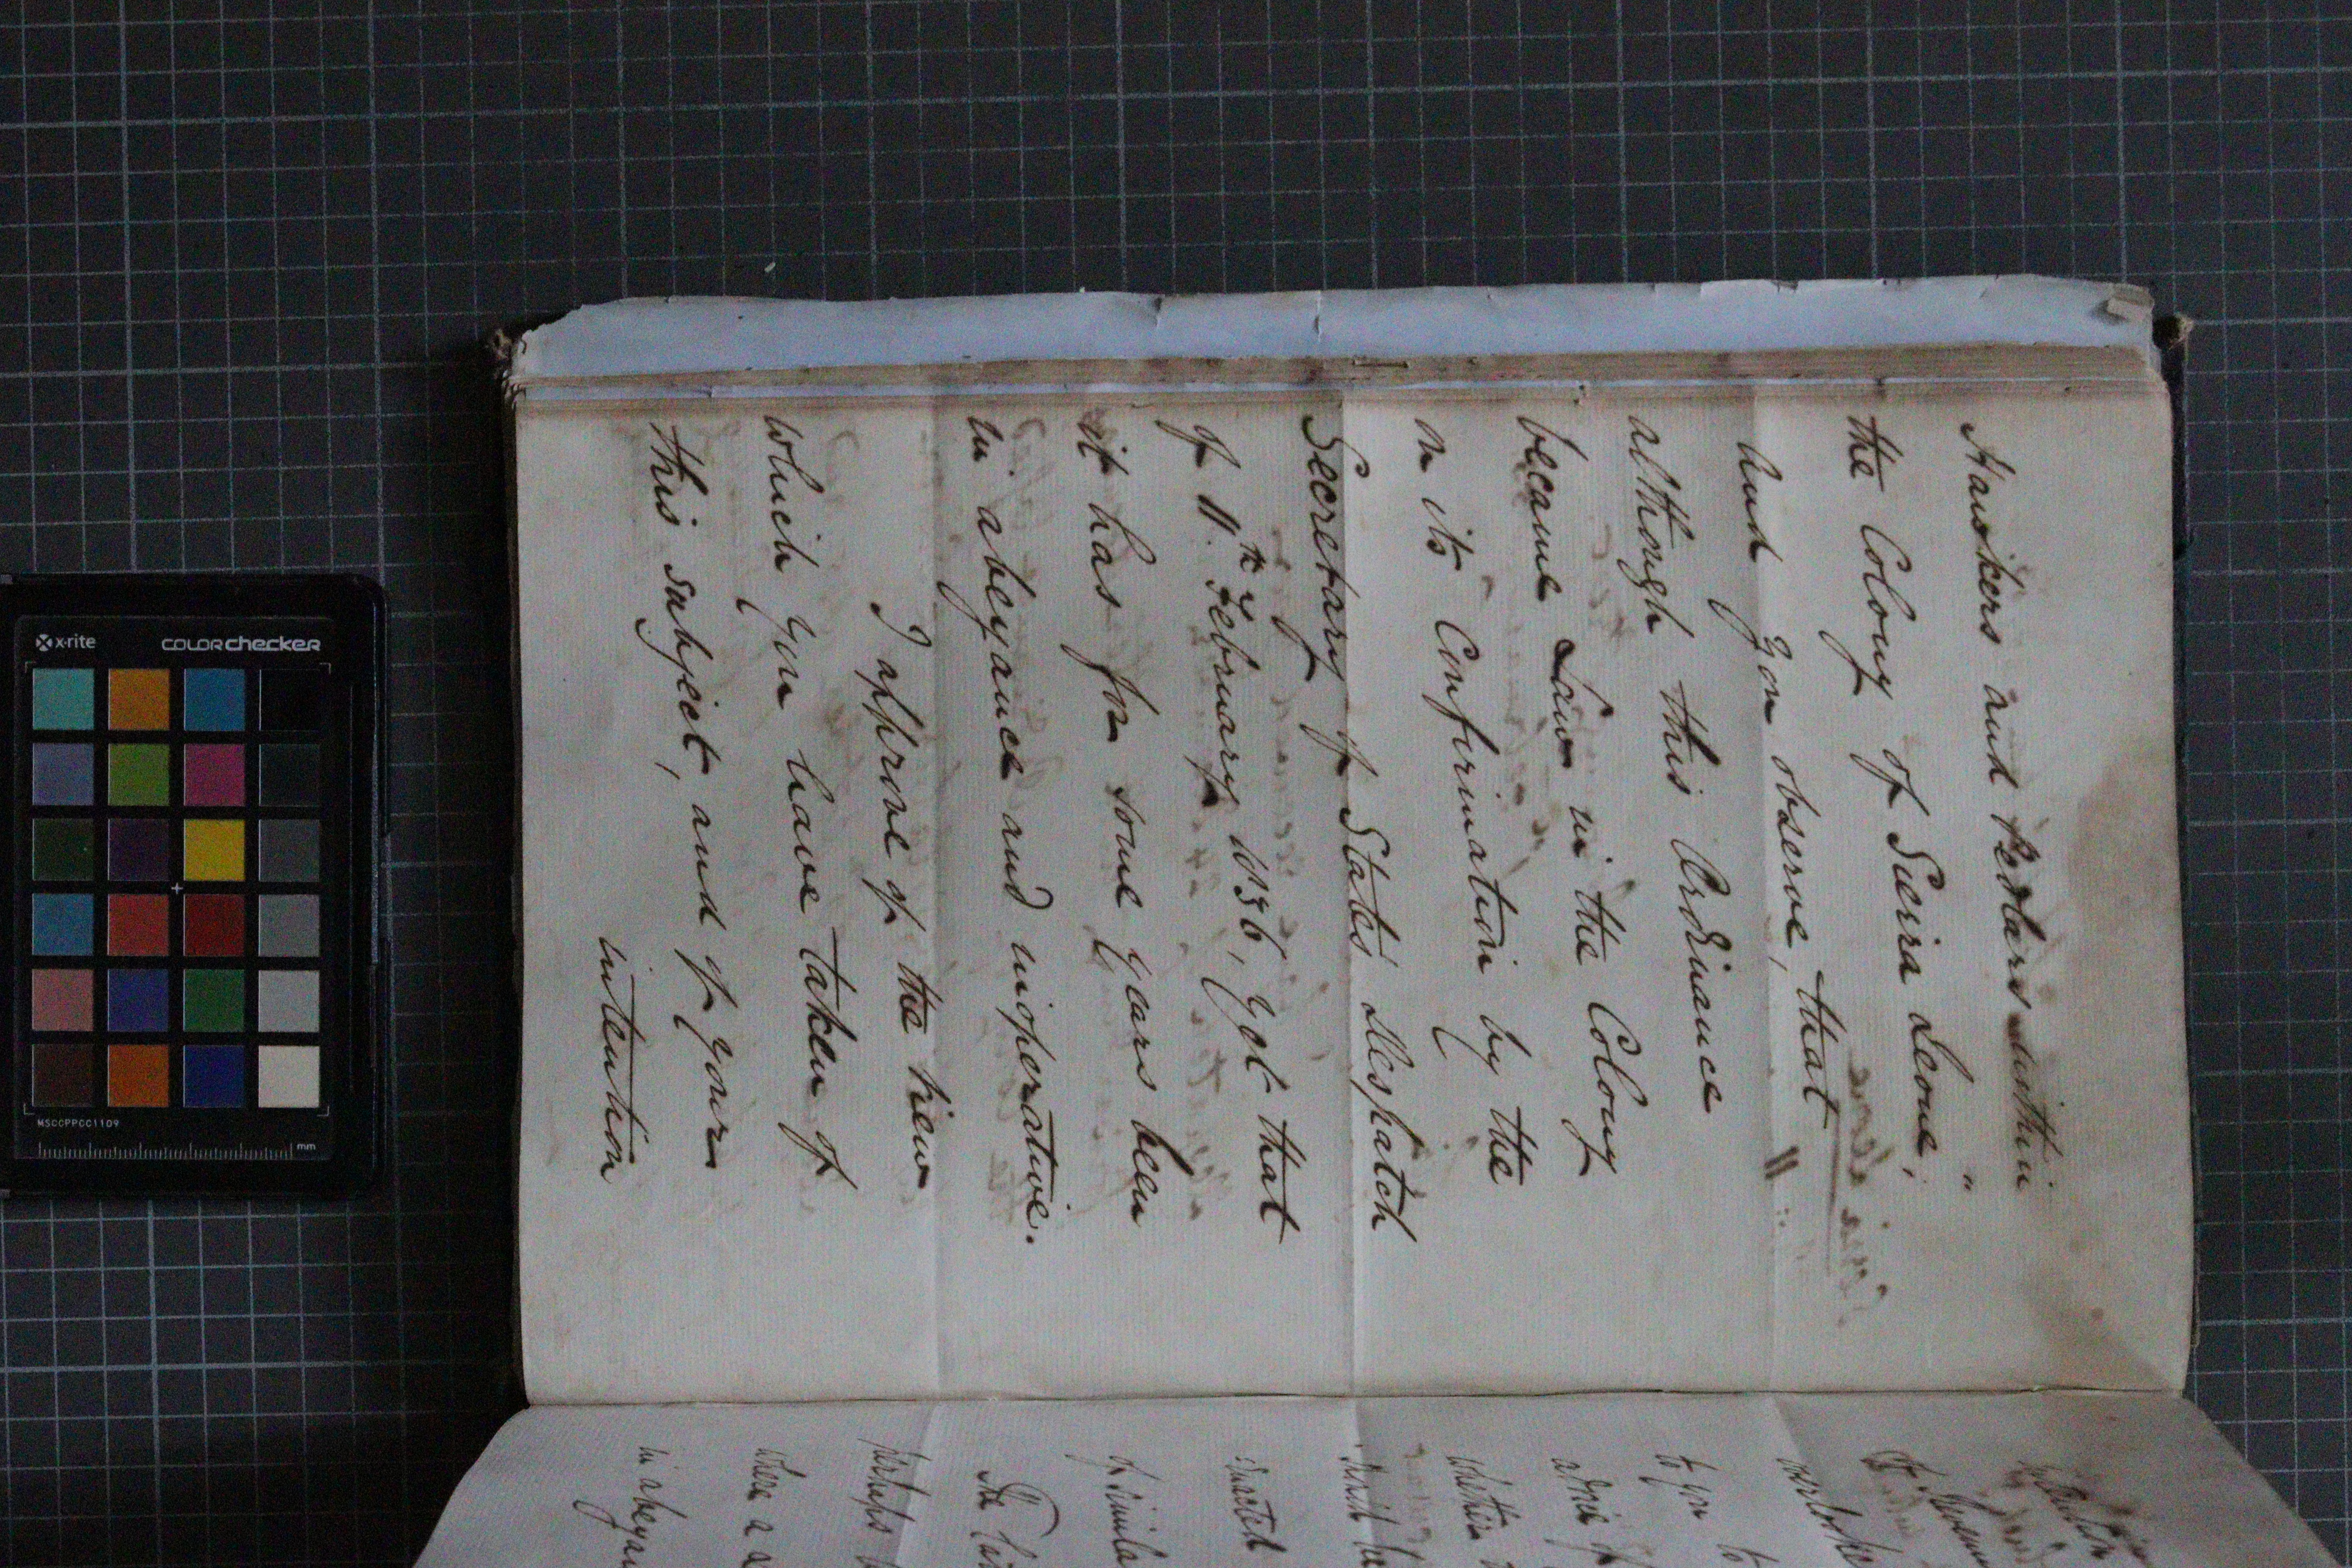 Hawkers and pedlars within
the Colony of Sierra Leone, "
And you observe, that
although this Ordinance
became Law in the Colony
on its Confirmation by the
Secretary of State's despatch
of 11th February 1856, yet that
it has for some years been
in abeyance and inoperative.
I approve of the view
which you have taken of
this subject, and of your
intention
to you to
whether
enacted
of simila
The
perhaps
where a
in abeyan
x-rite COLORchecker
MSCCPPCC1109
mm